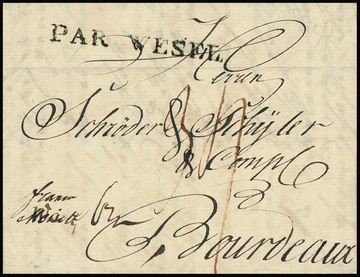 PAR WESEL
Herren
Schröder & Schÿler
& Comp
franco
Bourdeaux